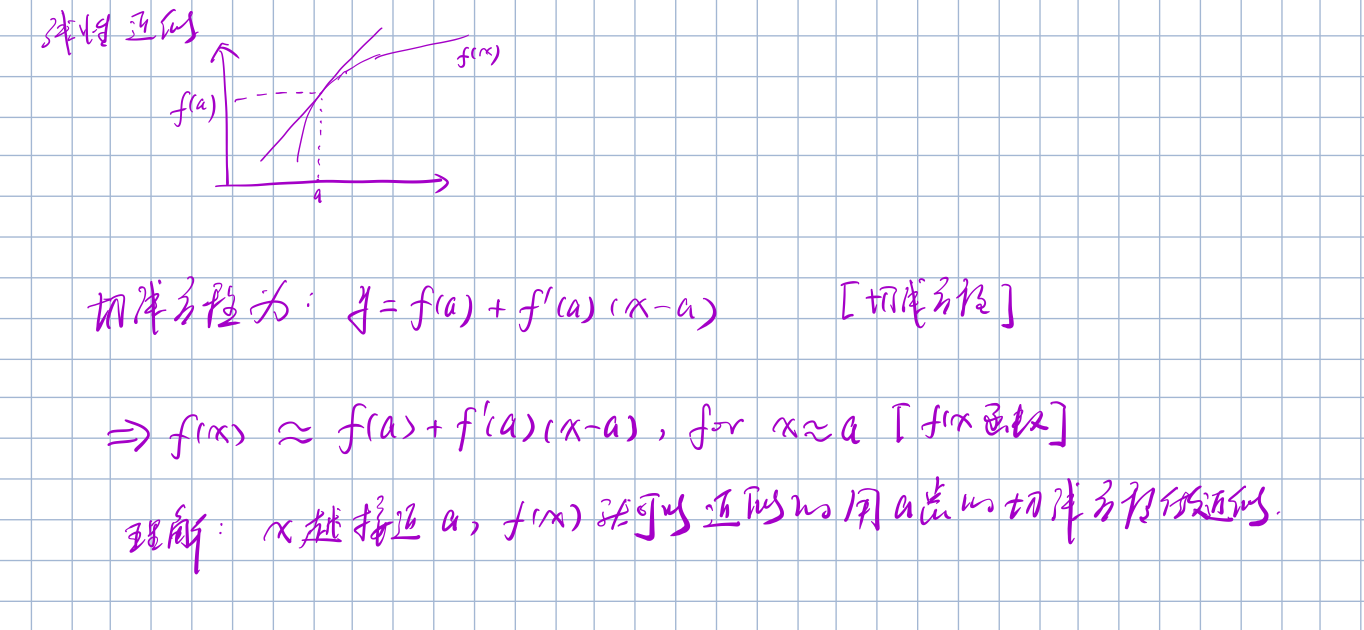 线性近似
f(x)
f(a)
a
切线方程为: y = f(a) + f'(a)(x-a) [切线方程]
⇒ f(x) ≈ f(a) + f'(a)(x-a), for x≈a [f(x函数]
理解: x越接近a, f(x)就可以近似的用a点的切线方程做近似.